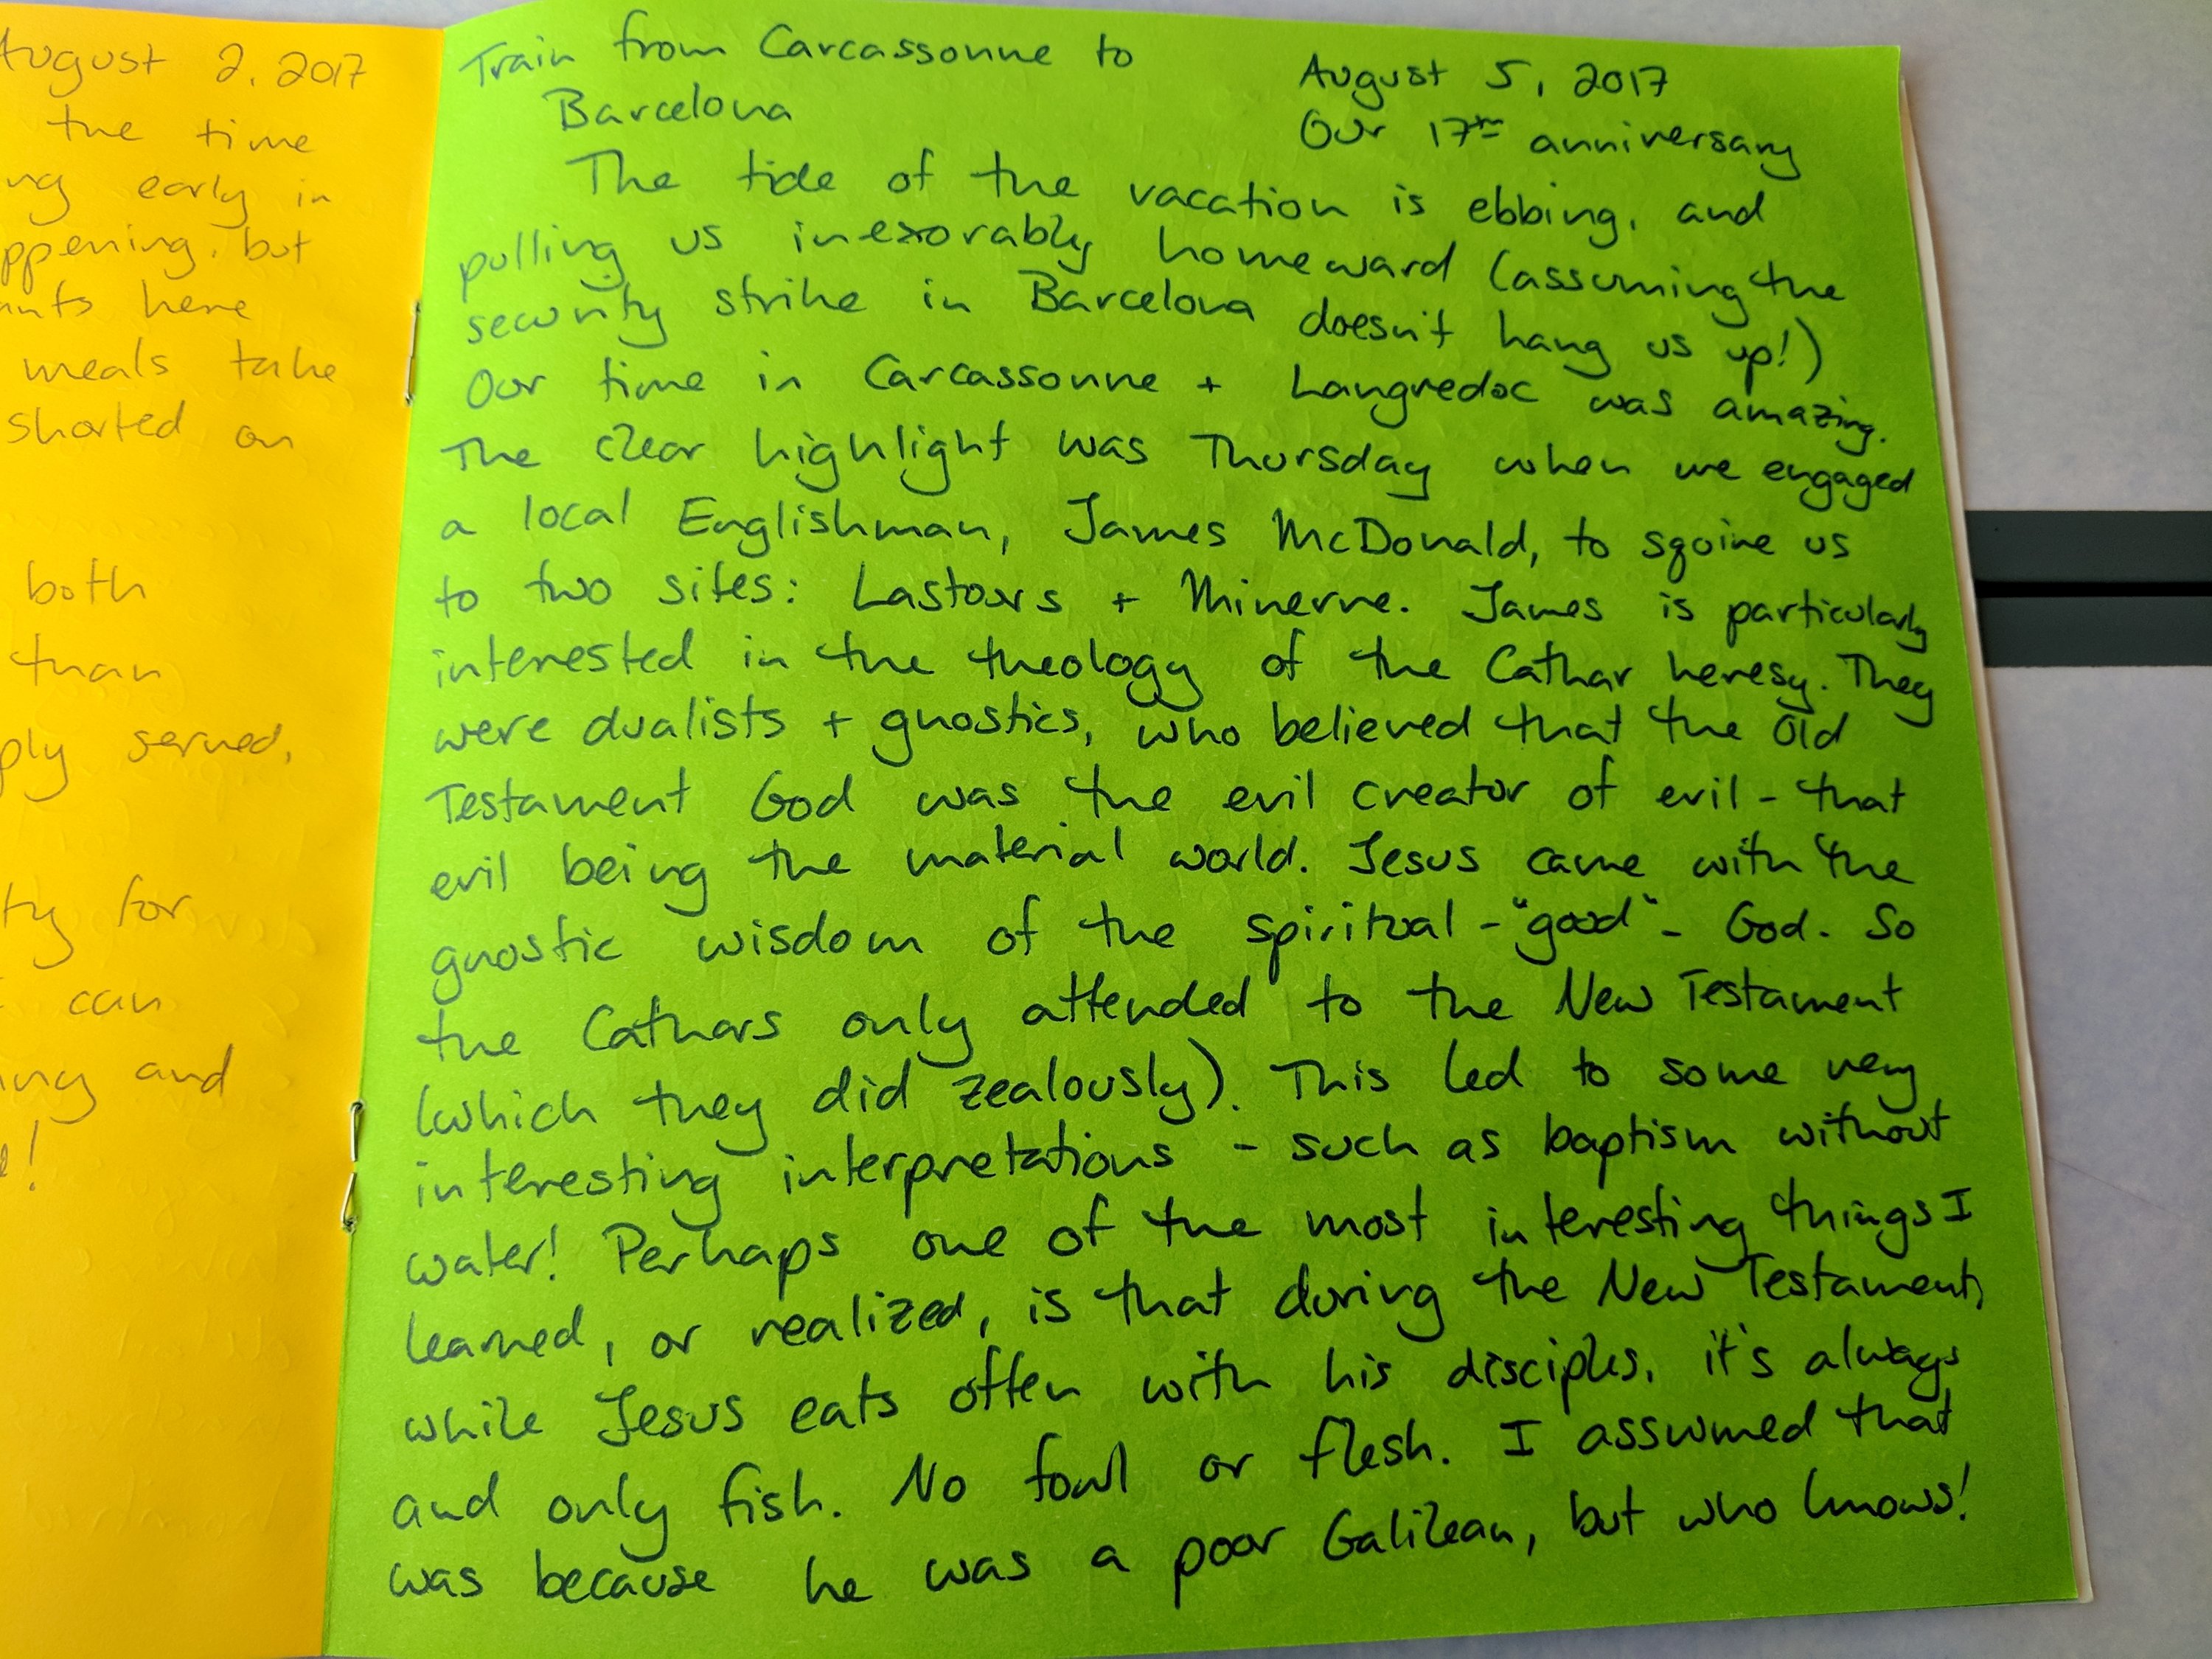 August 2, 2017
the time
ng early in
ppening, but
nts here
meals take
shorted on
both
than
ply served,
ty for
can
ing and
!
Train from Carcassonne to
Barcelona
August 5, 2017
Our 17th anniversary
The tide of the vacation is ebbing, and
pulling us inexorably homeward (assuming the
security strike in Barcelona doesn't hang us up!)
Our time in Carcassonne + Langredoc was amazing.
The clear highlight was Thursday when we engaged
a local Englishman, James McDonald, to sqoire us
to two sites: Lastours + Minerve. James is particularly
interested in the theology of the Cathar heresy. They
were dualists + gnostics, who believed that the Old
Testament God was the evil creator of evil - that
evil being the material world. Jesus came with the
gnostic wisdom of the spiritual - "good" - God. So
the Cathars only attended to the New Testament
(which they did zealously). This led to some very
interesting interpretations - such as baptism without
water! Perhaps one of the most interesting things I
learned, or realized, is that during the New Testament,
while Jesus eats often with his disciples, it's always
and only fish. No fowl or flesh. I assumed that
was because he was a poor Galilean, but who knows!